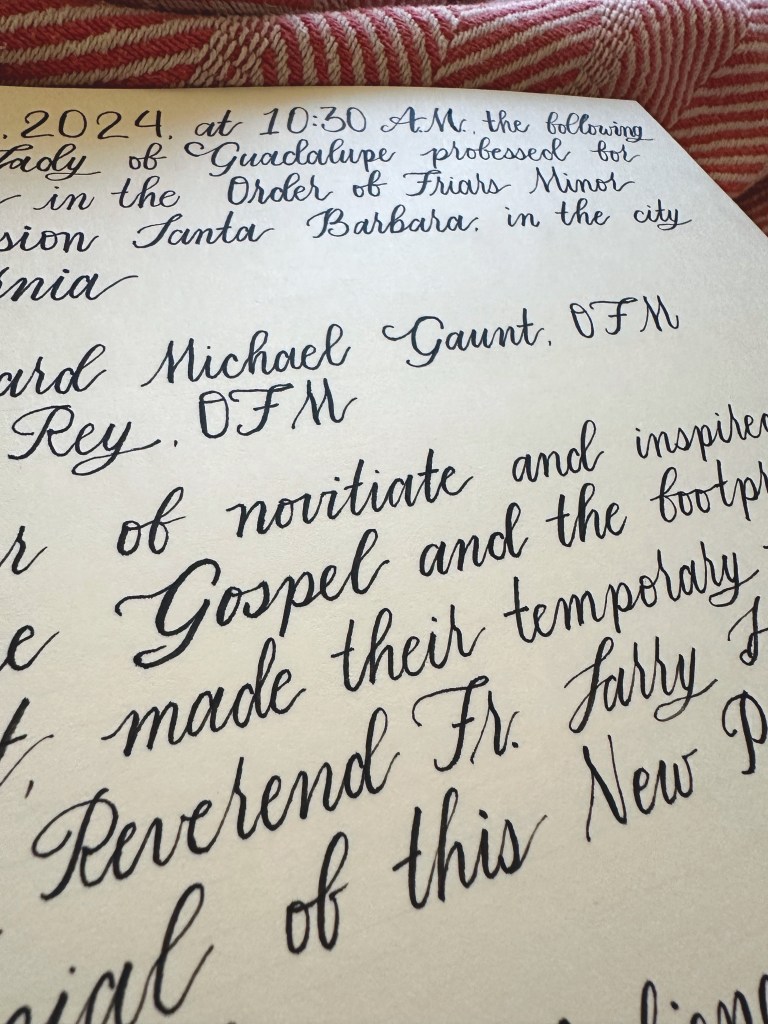 . 2024, at 10:30 A.M., the following
Lady of Guadalupe professed for
in the Order of Friars Minor
sion Santa Barbara, in the city
nia
ard Michael Gaunt, OFM
Rey, OFM
r of novitiate and inspired
e Gospel and the footpr
t, made their temporary
Reverend Fr. Larry
cial of this New P